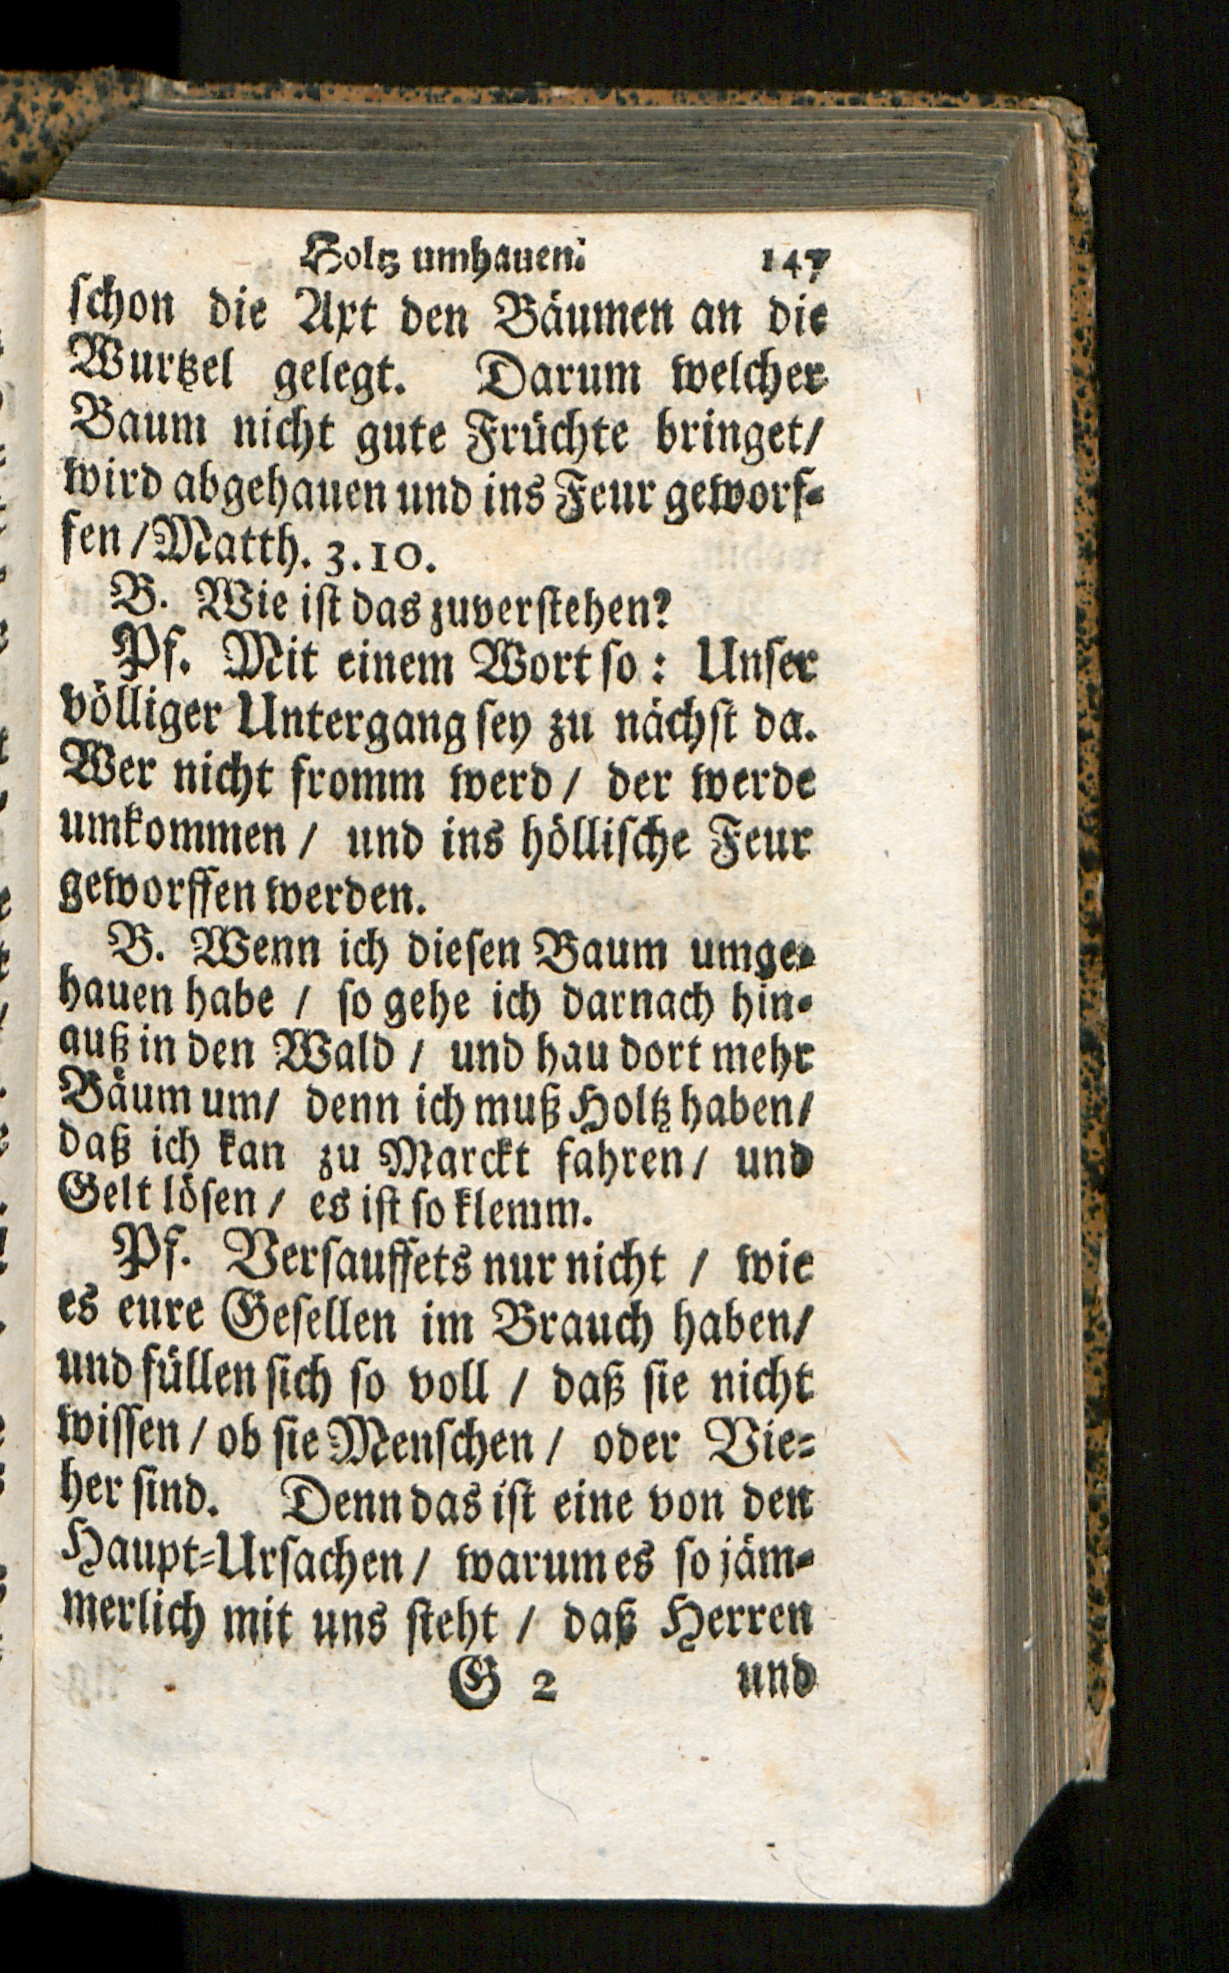 Holtz umhauen. 147
schon die Axt den Bäumen an die
Wurtzel gelegt. Darum welcher
Baum nicht gute Früchte bringet/
wird abgehauen und ins Feur geworf-
fen / Matth. 3. 10.
B. Wie ist das zuverstehen?
Pf. Mit einem Wort so: Unser
völliger Untergang sey zu nächst da.
Wer nicht fromm werd / der werde
umkommen / und ins höllische Feur
geworffen werden.
B. Wenn ich diesen Baum umge-
hauen habe / so gehe ich darnach hin-
auß in den Wald / und hau dort mehr
Bäum um/ denn ich muß Holtz haben/
daß ich kan zu Marckt fahren/ und
Gelt lösen / es ist so klemm.
Pf. Versauffets nur nicht / wie
es eure Gesellen im Brauch haben/
und füllen sich so voll / daß sie nicht
wissen / ob sie Menschen / oder Vie-
her sind. Denn das ist eine von den
Haupt-Ursachen / warum es so jäm-
merlich mit uns steht / daß Herren
G 2 und